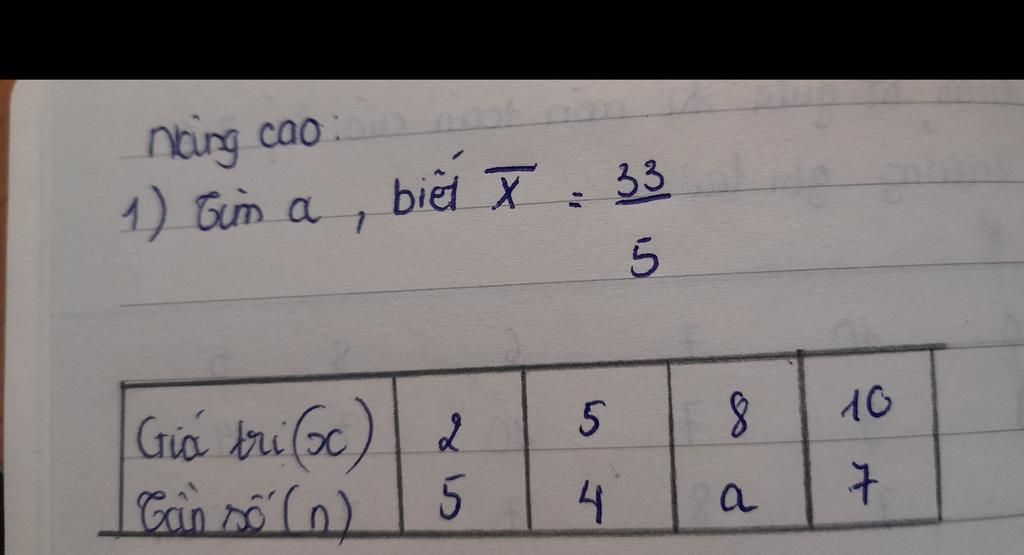 Nâng cao:
1) Tìm a, biết X̅ = 33/5
Giá trị(x) 2 5 8 10
Tần số(n) 5 4 a 7